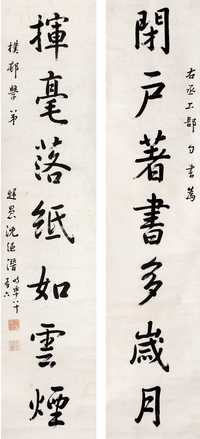 右丞工部句書為
閉戶著書多歲月
揮毫落紙如雲煙
樸邨學弟
歸愚沈德潛
時年八十
有六